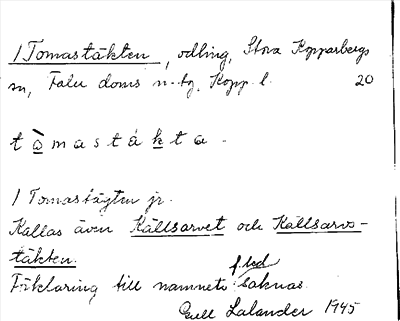 / Tomastäkten, odling, Stora Kopparbergs
sn, Falu doms n. tg, Kopp. l. 20
t ò m a s t á k t a -
/ Tomastägten jr.
Kallas även Källsarvet och Källsarvs-
täkten.
Förklaring till namnets f. led saknas.
Gull Lalander 1945